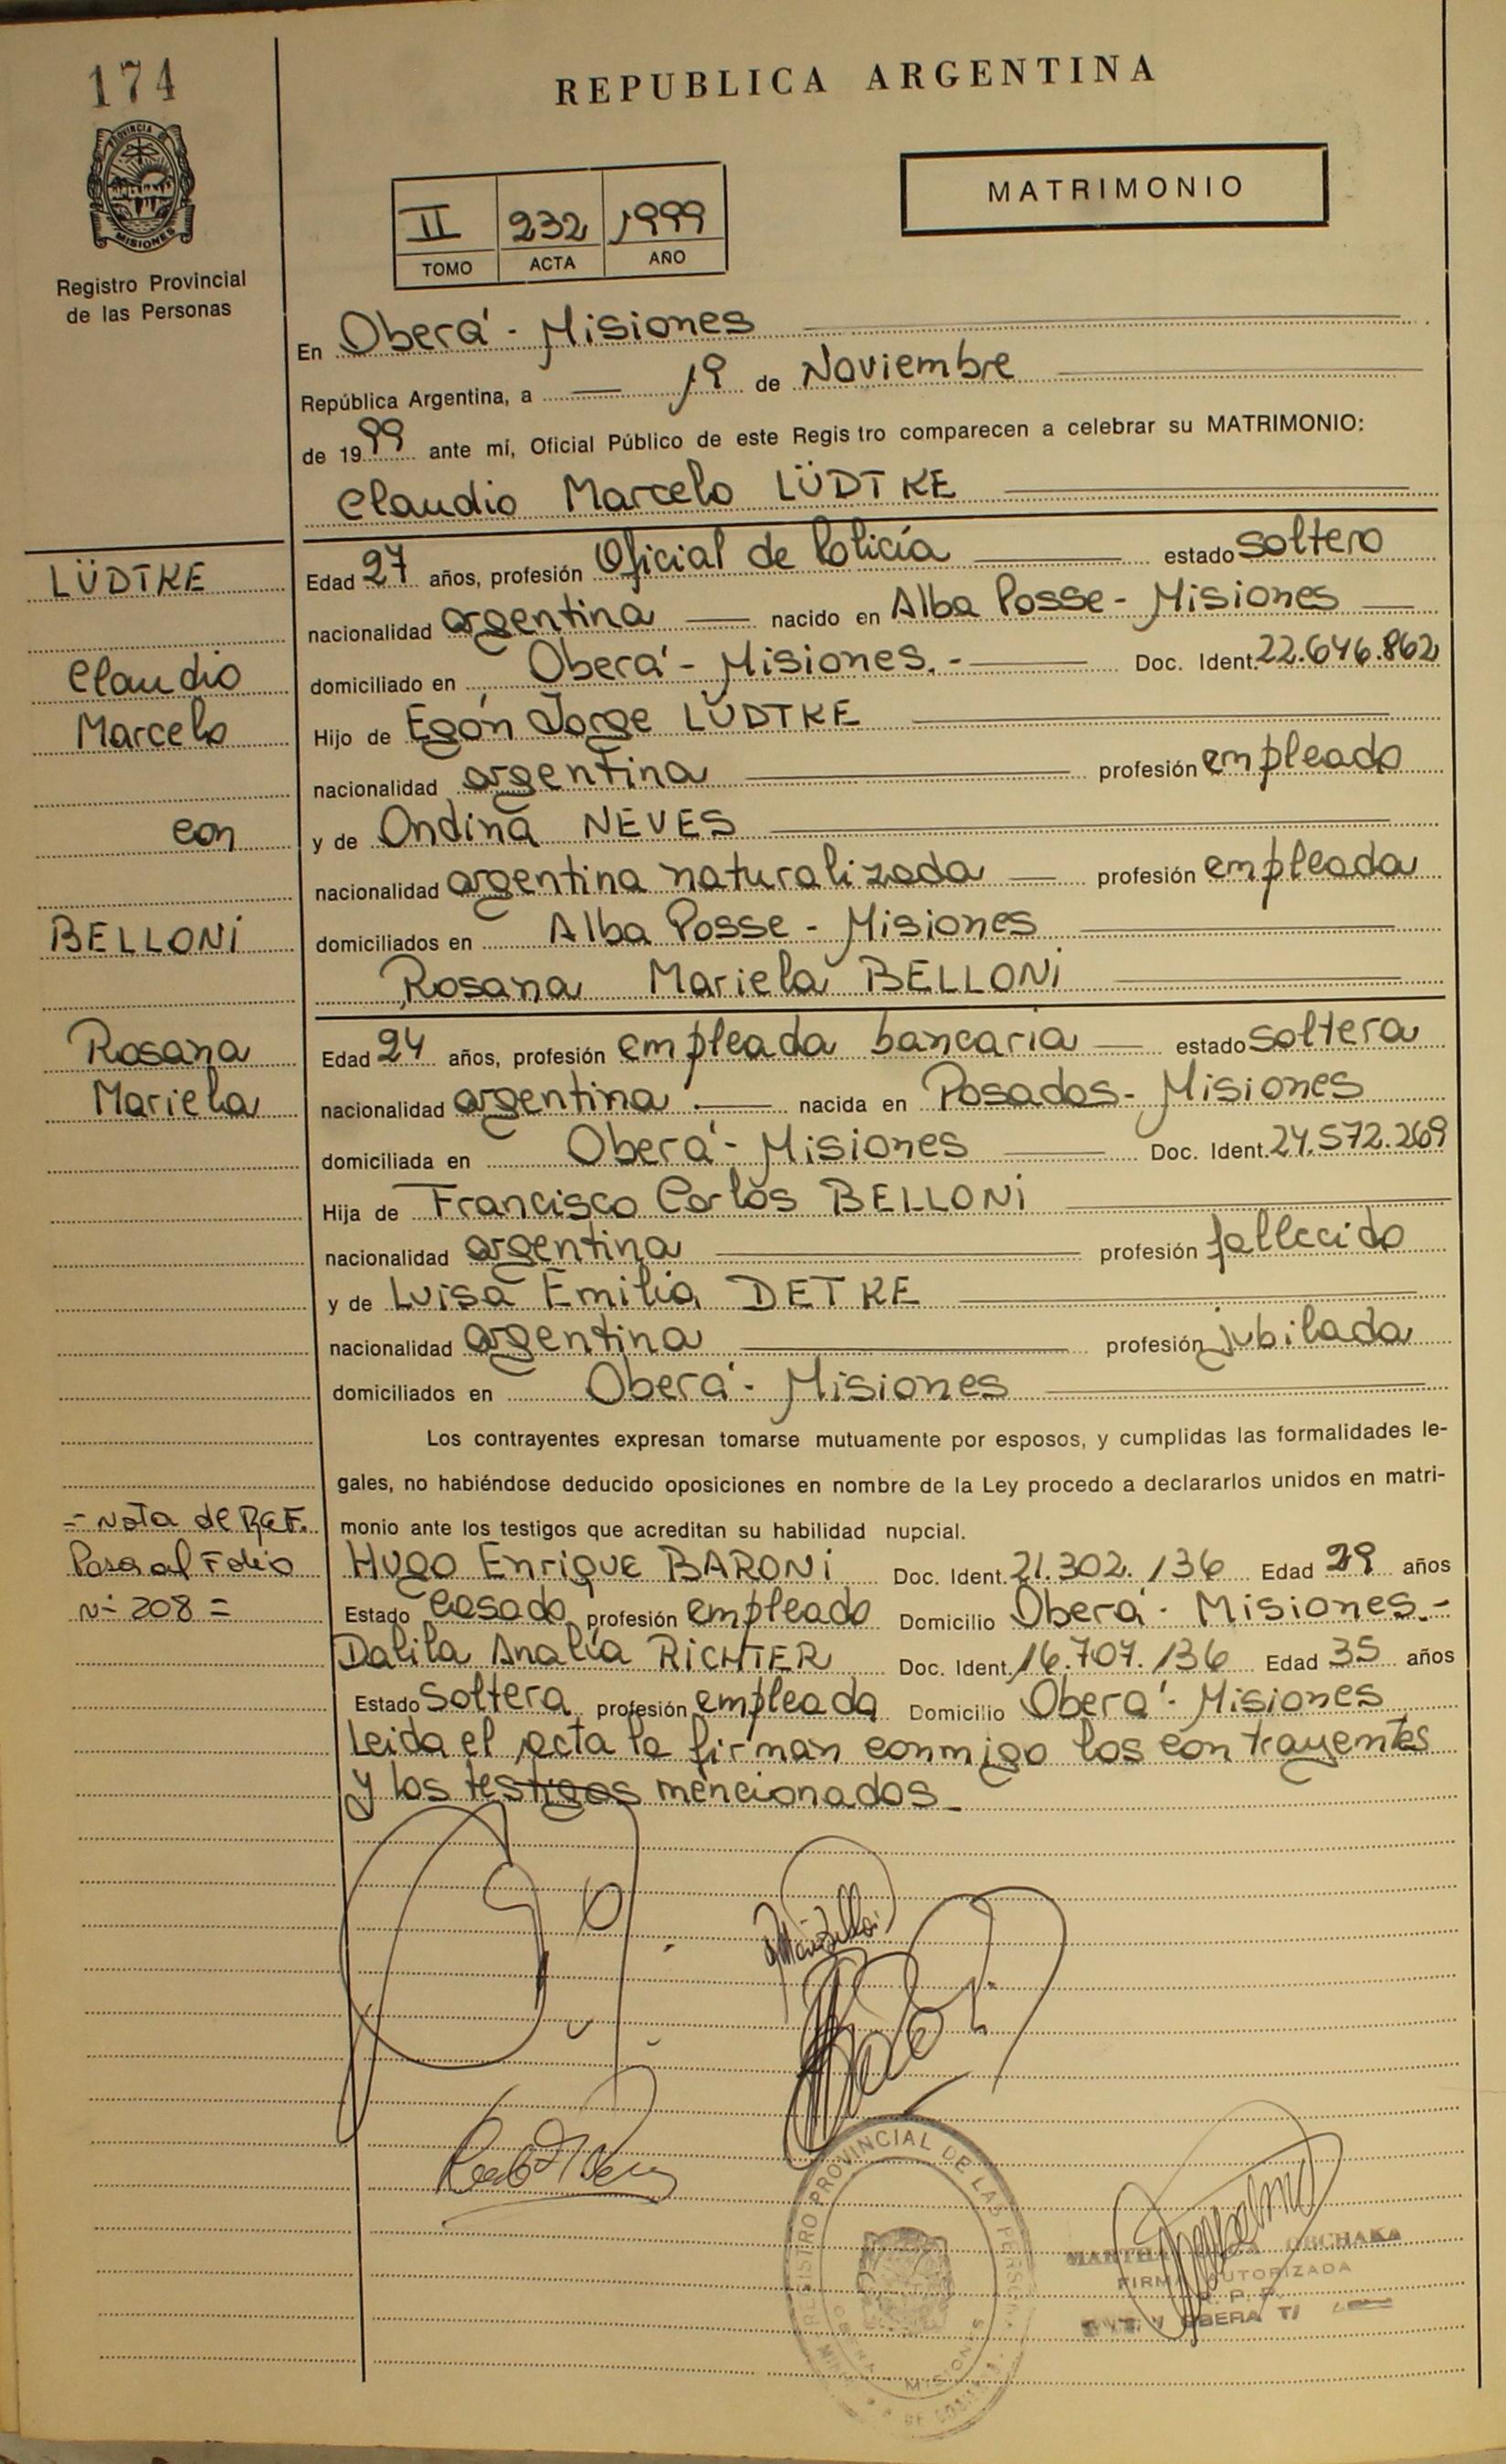 174
REPUBLICA ARGENTINA
PROVINCIA DE
MISIONES
Registro Provincial
de las Personas
II 232 1999
TOMO ACTA AÑO
MATRIMONIO
En Oberá - Misiones
República Argentina, a 19 de Noviembre
de 1999 ante mí, Oficial Público de este Regis tro comparecen a celebrar su MATRIMONIO:
Claudio Marcelo LÜDTKE
LÜDTKE
Claudio
Marcelo
con
BELLONI
Rosana
Mariela
Edad 27 años, profesión Oficial de Policía estado soltero
nacionalidad argentina nacido en Alba Posse - Misiones
domiciliado en Oberá - Misiones.- Doc. Ident. 22.646.862
Hijo de Egón Jorge LÜDTKE
nacionalidad argentina profesión empleado
y de Ondina NEVES
nacionalidad argentina naturalizada profesión empleada
domiciliados en Alba Posse - Misiones
Rosana Mariela BELLONI
Edad 24 años, profesión empleada bancaria estado soltera
nacionalidad argentina nacida en Posadas - Misiones
domiciliada en Oberá - Misiones Doc. Ident. 24.572.269
Hija de Francisco Carlos BELLONI
nacionalidad argentina profesión fallecido
y de Luisa Emilia DETKE
nacionalidad argentina profesión jubilada
domiciliados en Oberá - Misiones
Los contrayentes expresan tomarse mutuamente por esposos, y cumplidas las formalidades le-
gales, no habiéndose deducido oposiciones en nombre de la Ley procedo a declararlos unidos en matri-
monio ante los testigos que acreditan su habilidad nupcial.
- Nota de REF.
Pasa al Folio
Nº 208 =
Hugo Enrique BARONI Doc. Ident. 21.302.136 Edad 29 años
Estado Casado profesión empleado Domicilio Oberá - Misiones.-
Dalila Analía RICHTER Doc. Ident. 16.707.136 Edad 35 años
Estado soltera profesión empleada Domicilio Oberá - Misiones
Leida el acta la firman conmigo los contrayentes
y los testigos mencionados
REGISTRO PROVINCIAL DE LAS PERSONAS
OBERA MISIONES
MARTHA ORCHAKA
FIRMA AUTORIZADA
R. P. P.
OBERA